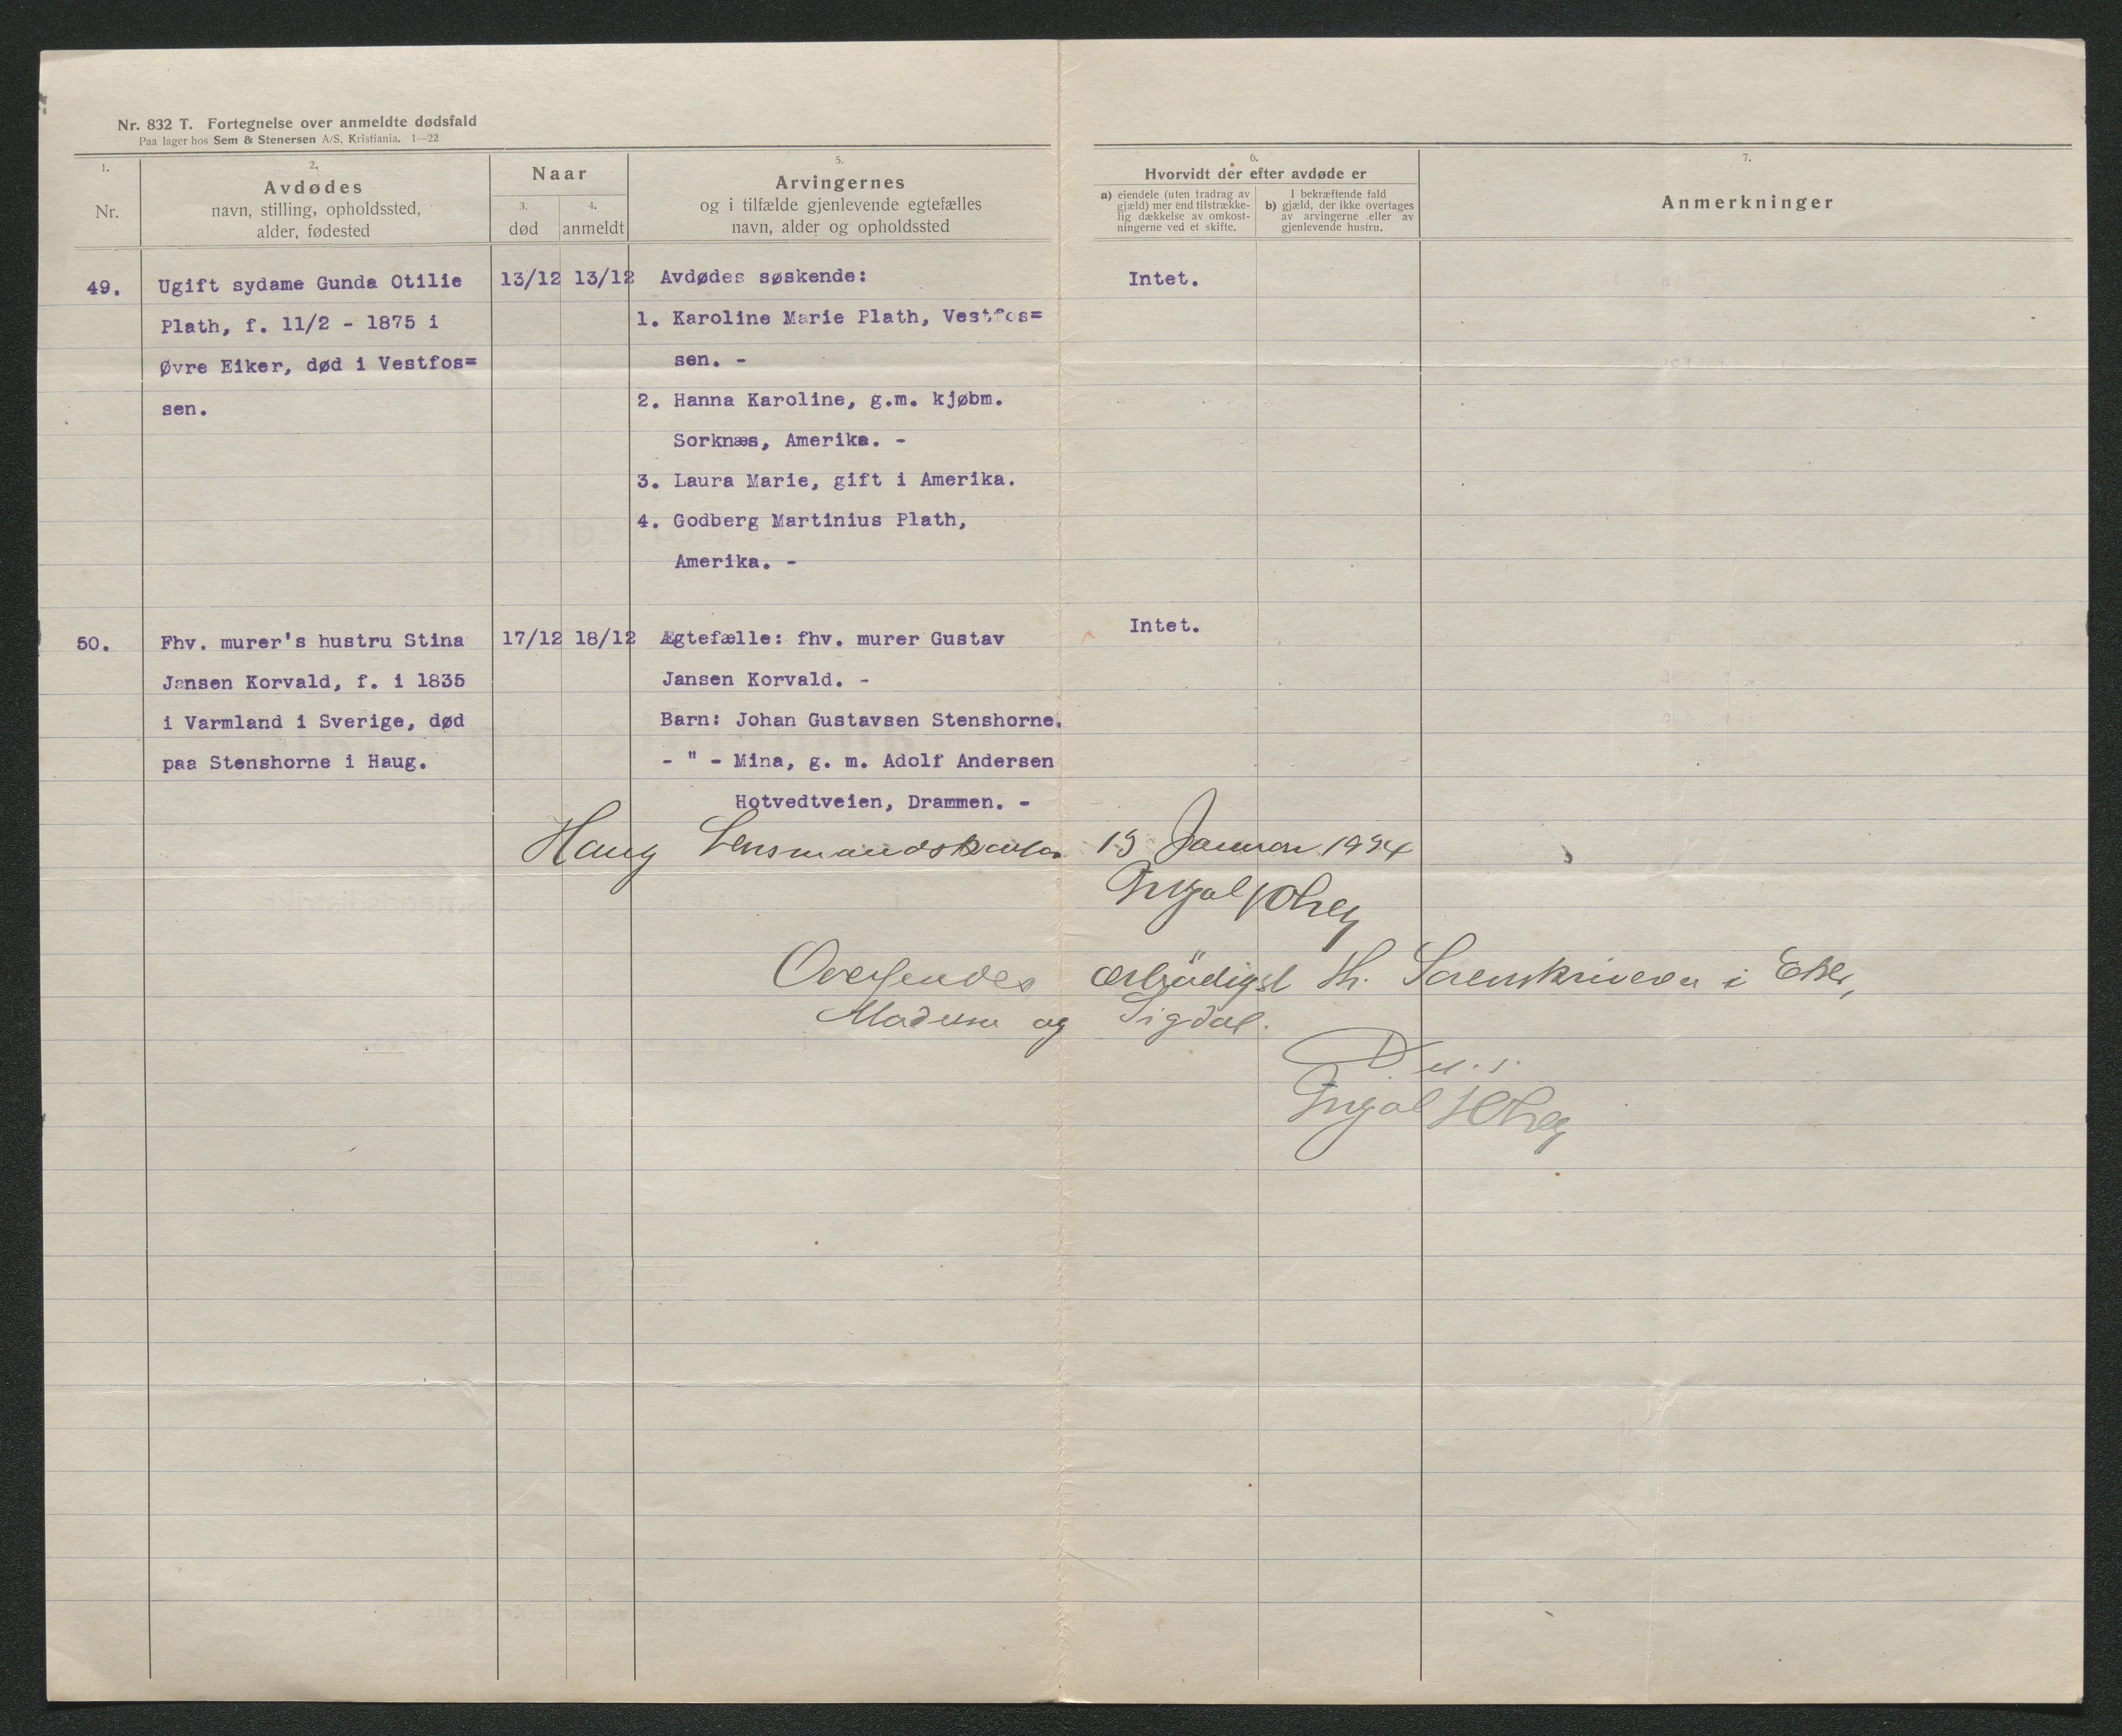 Nr. 832 T. Fortegnelse over anmeldte dødsfald
Paa lager hos Sem & Stenersen A/S, Kristiania. 1—22
1.
Nr.
2.
Avdødes
navn, stilling, opholdssted,
alder, fødested
Naar
3.
død
4.
anmeldt
5.
Arvingernes
og i tilfælde gjenlevende egtefælles
navn, alder og opholdssted
6.
Hvorvidt der efter avdøde er
a) eiendele (uten fradrag av
gjæld) mer end tilstrække-
lig dækkelse av omkost-
ningerne ved et skifte.
I bekræftende fald
b) gjæld, der ikke overtages
av arvingerne eller av
gjenlevende hustru.
7.
Anmerkninger
49.
Ugift sydame Gunda Otilie
Plath, f. 11/2 - 1875 i
Øvre Eiker, død i Vestfos=
sen.
13/12 13/12
Avdødes søskende:
1. Karoline Marie Plath, Vestfos=
sen. -
2. Hanna Karoline, g.m. kjøbm.
Sorknæs, Amerika. -
3. Laura Marie, gift i Amerika.
4. Godberg Martinius Plath,
Amerika. -
Intet.
50.
Fhv. murer's hustru Stina
Jansen Korvald, f. i 1835
i Varmland i Sverige, død
paa Stenshorne i Haug.
17/12 18/12
Ægtefælle: fhv. murer Gustav
Jansen Korvald. -
Barn: Johan Gustavsen Stenshorne.
- " - Mina, g. m. Adolf Andersen
Hotvedtveien, Drammen. -
Intet.
Haug Lensmandskontor 15 Januar 1924
Oversendes ærbødigst Hr. Sorenskriveren i Eker,
Modum og Sigdal.
D. u. s.